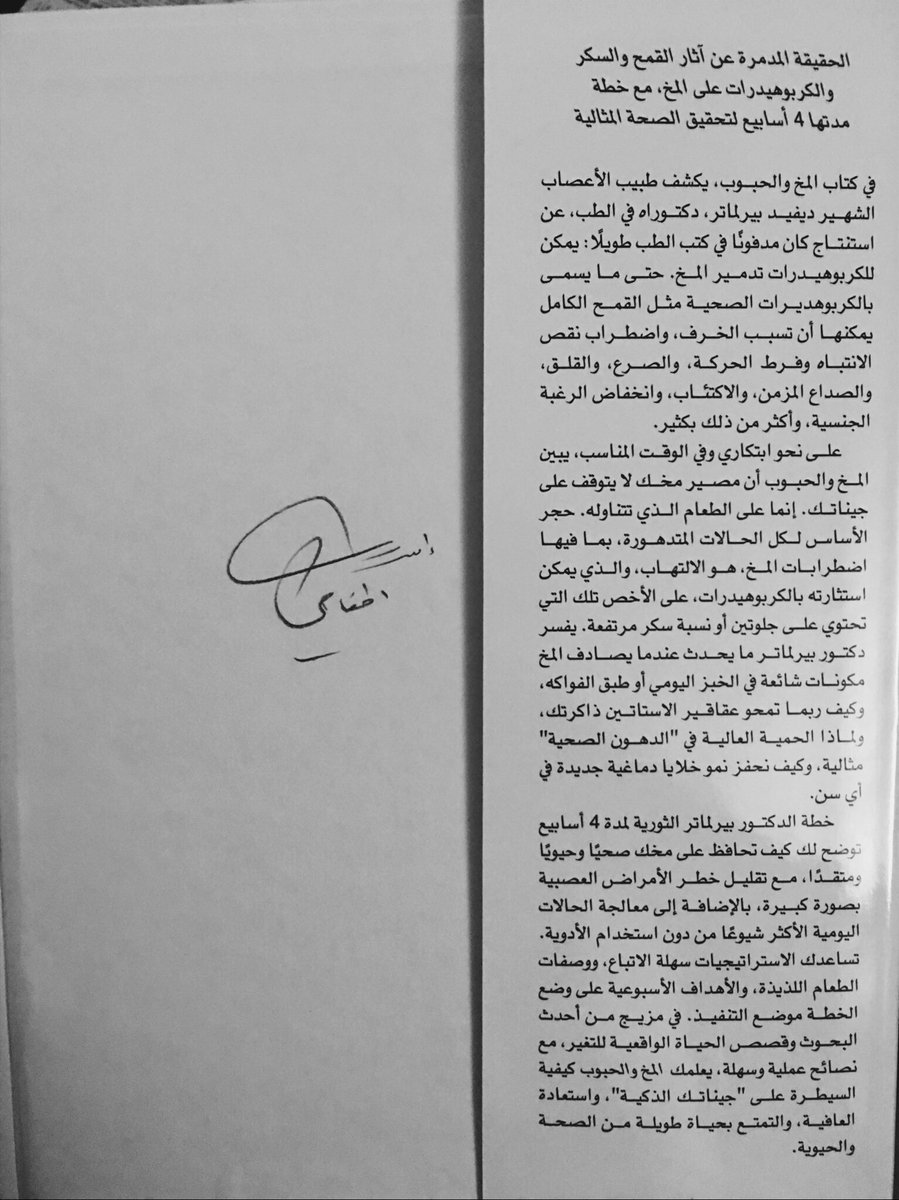 الحقيقة المدمرة عن آثار القمح والسكر
والكربوهيدرات على المخ، مع خطة
مدتها 4 أسابيع لتحقيق الصحة المثالية
في كتاب المخ والحبوب، يكشف طبيب الأعصاب
الشهير ديفيد بيرلماتر، دكتوراه في الطب، عن
استنتاج كان مدفونًا في كتب الطب طويلًا: يمكن
للكربوهيدرات تدمير المخ. حتى ما يسمى
بالكربوهديرات الصحية مثل القمح الكامل
يمكنها أن تسبب الخرف، واضطراب نقص
الانتباه وفرط الحركة، والصرع، والقلق،
والصداع المزمن، والاكتئاب، وانخفاض الرغبة
الجنسية، وأكثر من ذلك بكثير.
على نحو ابتكاري وفي الوقت المناسب، يبين
المخ والحبوب أن مصير مخك لا يتوقف على
جيناتك. إنما على الطعام الذي تتناوله. حجر
الأساس لكل الحالات المتدهورة، بما فيها
اضطرابات المخ، هو الالتهاب، والذي يمكن
استثارته بالكربوهيدرات، على الأخص تلك التي
تحتوي على جلوتين أو نسبة سكر مرتفعة. يفسر
دكتور بيرلماتر ما يحدث عندما يصادف المخ
مكونات شائعة في الخبز اليومي أو طبق الفواكه،
وكيف ربما تمحو عقاقير الاستاتين ذاكرتك،
ولماذا الحمية العالية في "الدهون الصحية"
مثالية، وكيف نحفز نمو خلايا دماغية جديدة في
أي سن.
خطة الدكتور بيرلماتر الثورية لمدة 4 أسابيع
توضح لك كيف تحافظ على مخك صحيًا وحيويًا
ومتقدًا، مع تقليل خطر الأمراض العصبية
بصورة كبيرة، بالإضافة إلى معالجة الحالات
اليومية الأكثر شيوعًا من دون استخدام الأدوية.
تساعدك الاستراتيجيات سهلة الاتباع، ووصفات
الطعام اللذيذة، والأهداف الأسبوعية على وضع
الخطة موضع التنفيذ. في مزيج من أحدث
البحوث وقصص الحياة الواقعية للتغير، مع
نصائح عملية وسهلة، يعلمك المخ والحبوب كيفية
السيطرة على "جيناتك الذكية"، واستعادة
العافية، والتمتع بحياة طويلة من الصحة
والحيوية.